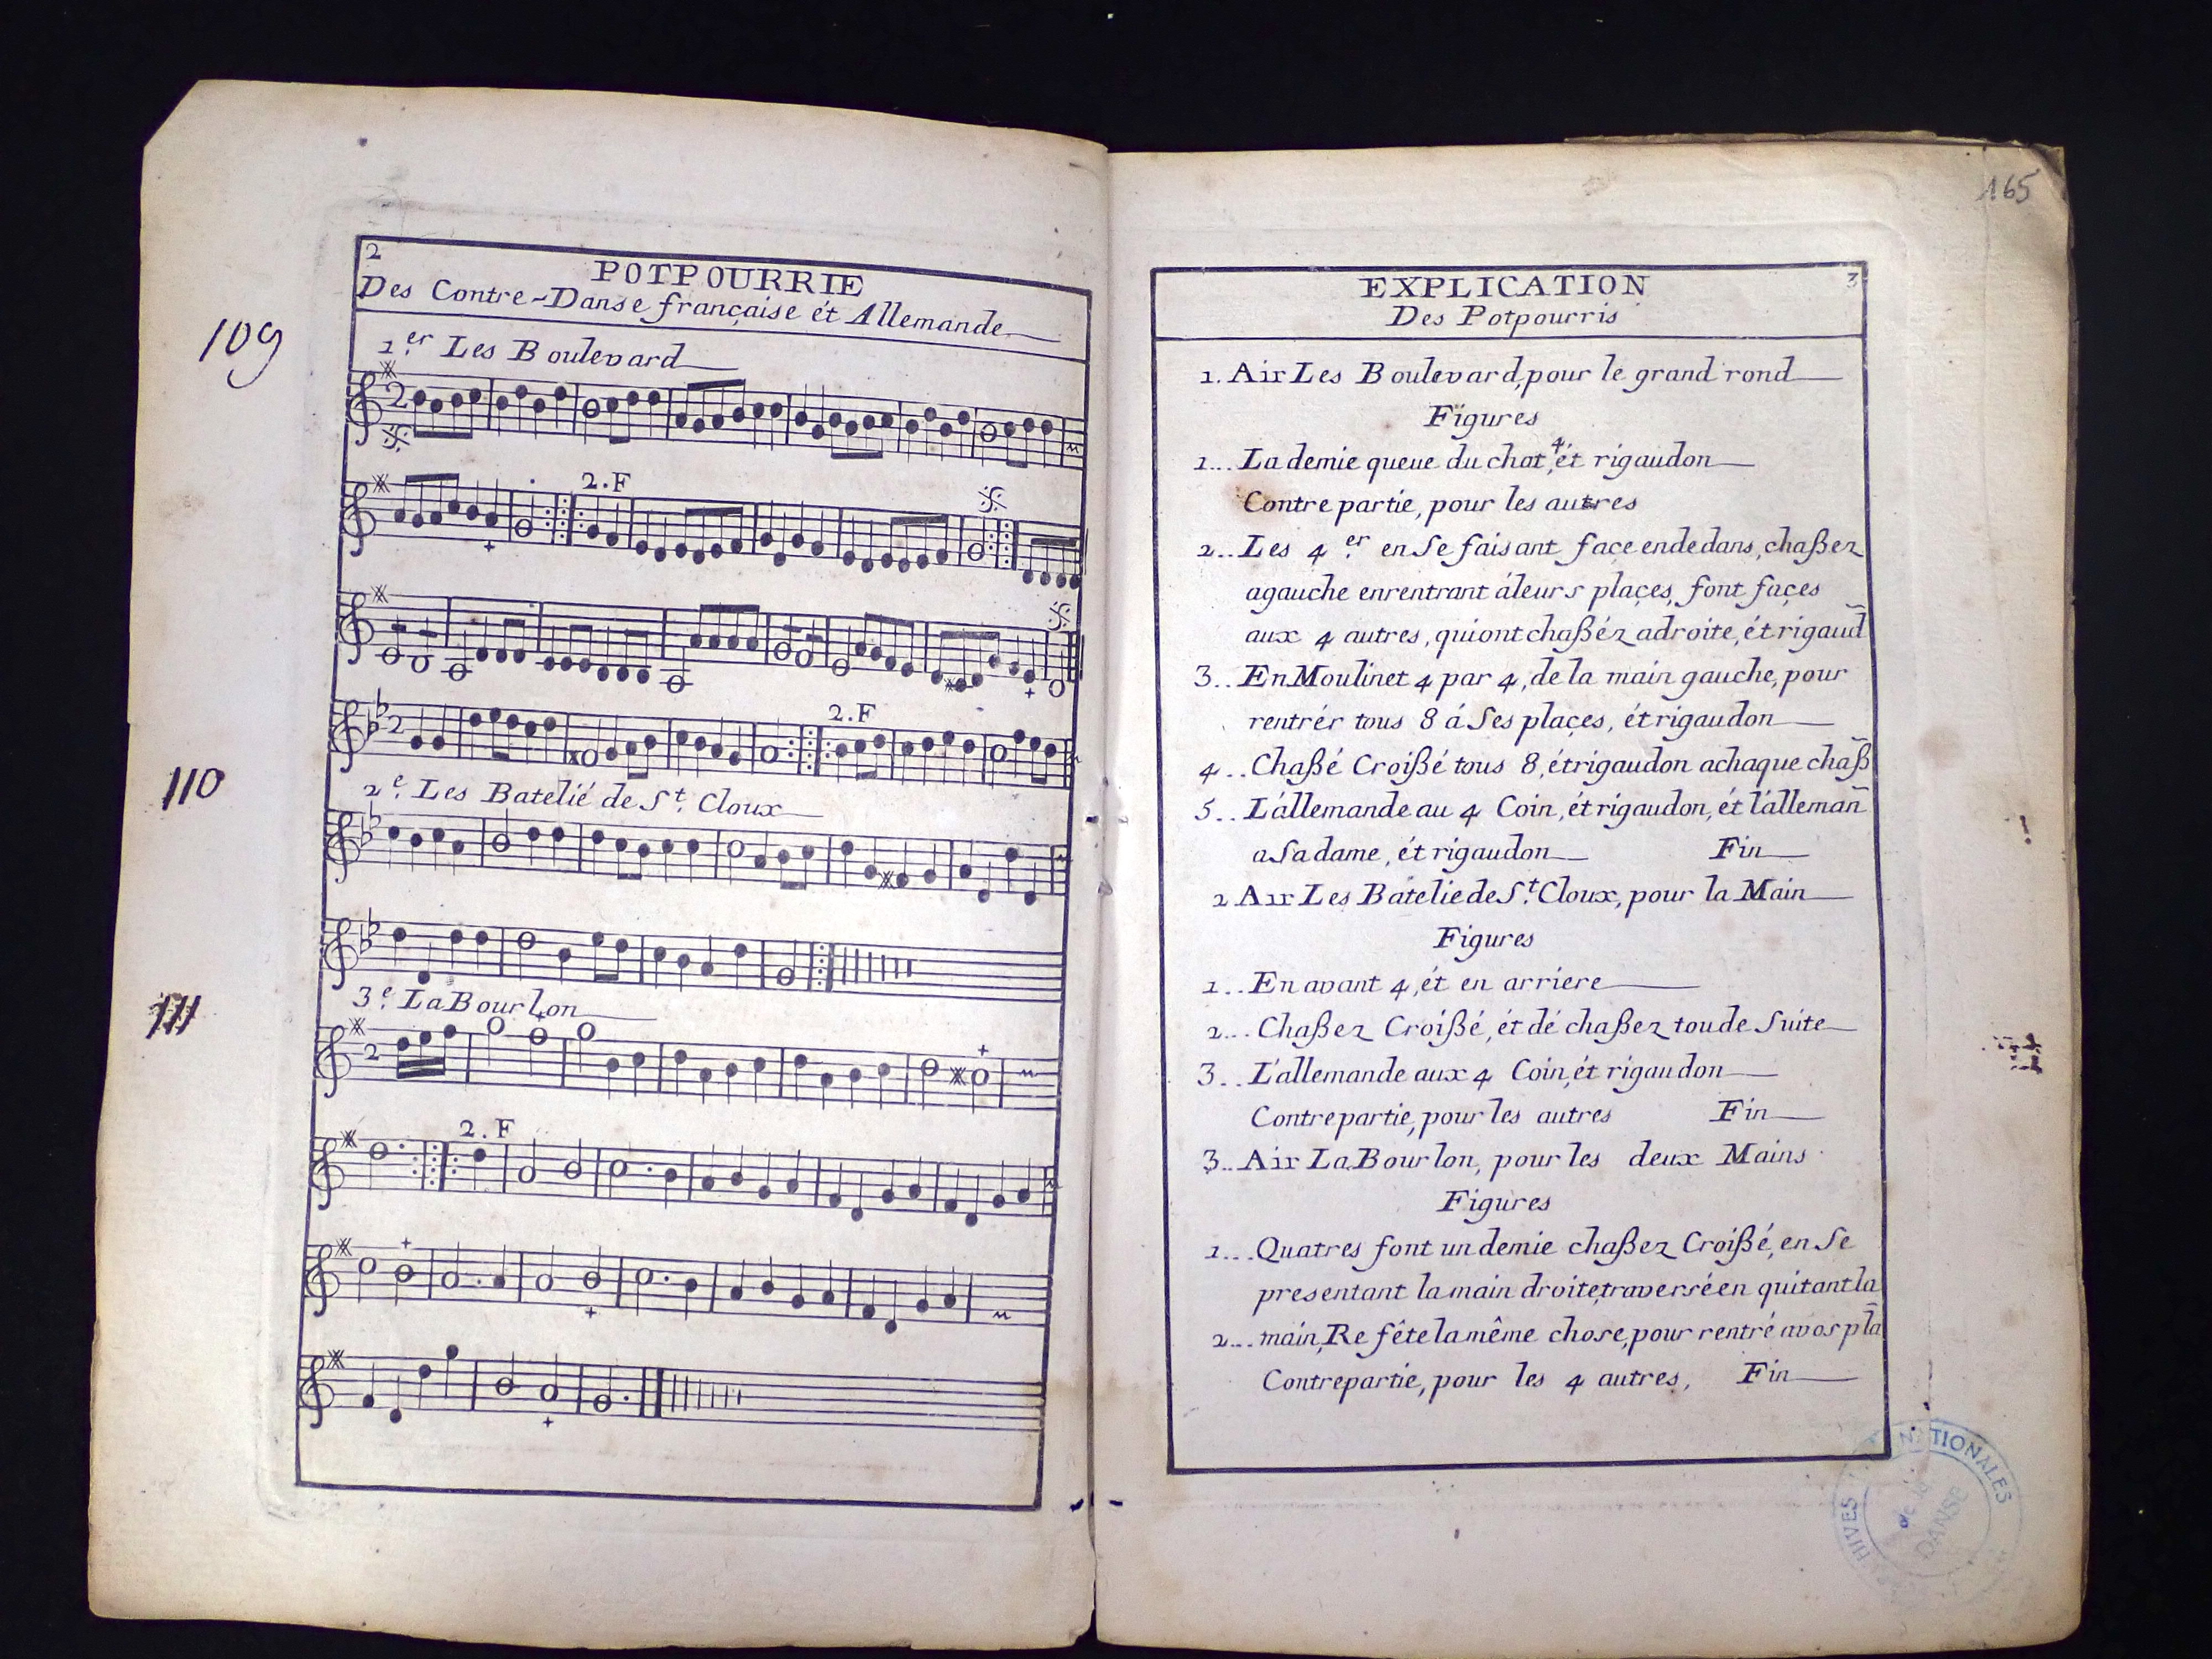 109
110
111
2
POTPOURRIE
Des Contre-Danse française ét Allemande
1.er Les Boulevard
2
2.F
2
2.F
2.e Les Batelié de St. Cloux
3.e La Bourlon
2
2.F
165
3
EXPLICATION
Des Potpourris
1. Air Les Boulevard, pour le grand rond
Figures
1... La demie queue du chat 4, ét rigaudon
Contre partie, pour les autres
2.. Les 4 er. en Se faisant façe endedans, chaßez
agauche enrentrant áleurs plaçes, font façes
aux 4 autres, quiont chaßéz adroite, ét rigaud̃
3.. En Moulinet 4 par 4, de la main gauche, pour
rentrér tous 8 á Ses plaçes, ét rigaudon
4.. Chaßé Croißé tous 8, ét rigaudon achaque chãß
5.. L'allemande au 4 Coin, ét rigaudon, ét l'allemañ
a Sa dame, ét rigaudon Fin
2 Air Les Batelie de St. Cloux, pour la Main
Figures
1.. En avant 4, ét en arriere
2... Chaßez Croißé, ét dé chaßez tou de Suite
3.. L'allemande aux 4 Coin, ét rigaudon
Contrepartie, pour les autres Fin
3.. Air La Bourlon, pour les deux Mains
Figures
1... Quatres font un demie chaßez Croißé, en Se
presentant la main droite, traversé en quitant la
2... main, Re fête la même chose, pour rentré avos plã
Contrepartie, pour les 4 autres, Fin
HIVES NATIONALES
de la
DANSE